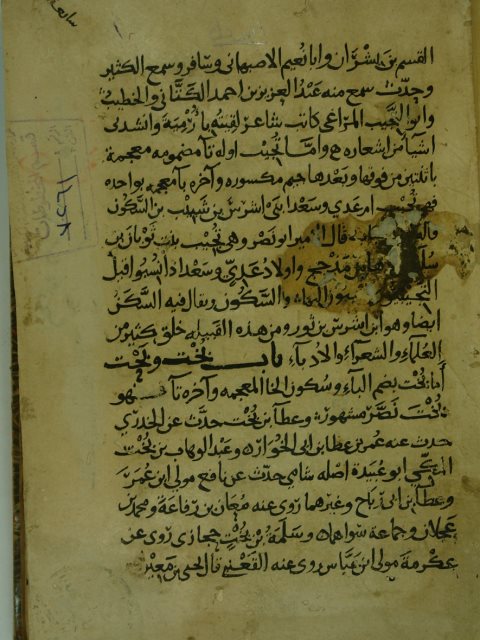 القسم بن بشران وابا نعيم الاصبهانى وسافر وسمع الكثير
وحدّث سمع منه عبد العزيز بن احمد الكتّانى والخطيب
وابو النجيب المراغى كاتب شاعر لقيته بارمية وانشدنى
اشيآ من اشعاره ع وامّا تُجيب اوله تآ مضمومه معجمة
باثنتين من فوقها وبعدها جيم مكسوره وآخره بآ معجمه بواحده
فهو تُجيب ام عدي وسعد ابنى اشرس بن شبيب بن السكون
قال الامير ابو نصر وهى تُجيب بنت ثوبان بن
سليم بن مذحج واولاد عدي وسعد اذا نسبوا قيل
التجيبيون والسكون ويقال فيه السكن
ايضا وهو ابن اشرس بن ثور ومن هذه القبيله خلق كثير من
العلمآء والشعرآء والادبآء باب بُخْت و
أما بُخْت بضم البآء وسكون الخا المعجمه وآخره تآ فهو
بُخْت نَصَّر مشهور وعطآ بن بُخْت حدّث عن الخدري
حدث عنه عمر بن عطا بن ابى الخوار وعبد الوهاب بن بُخْت
المكّي ابو عبيدة اصله شامي حدّث عن نافع مولى ابن عُمر
وعطآ بن ابى رباح وغيرهما روى عنه معان بن رفاعة ومحمد بن
عجلان وجماعة سواهما وسلمة بن بُخْت حجازى روى عن
عكرمة مولى ابن عبّاس روى عنه القعنبي قال يحيى بن معين